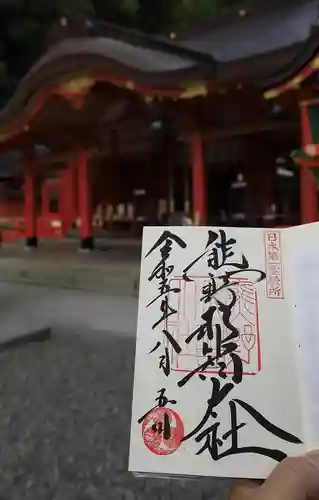 日本第一霊験所
熊野那智大社
令和五年八月五日